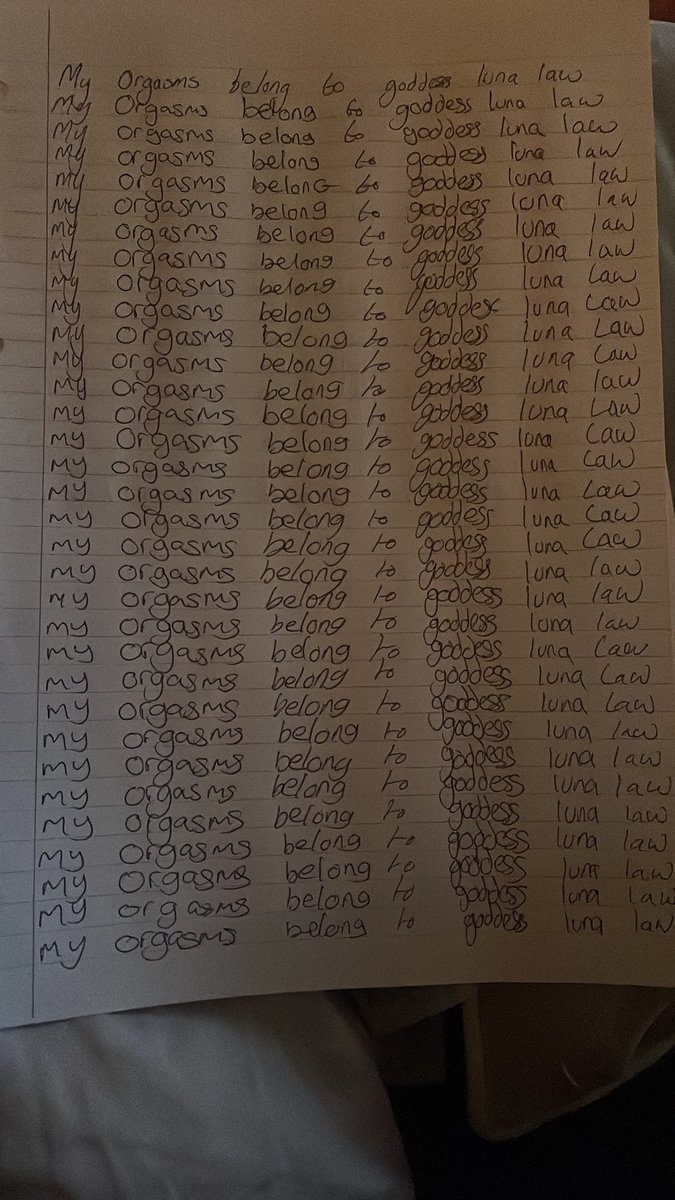 My Orgasms belong to goddess luna law
My Orgasms belong to goddess luna law
My orgasms belong to goddess luna law
My orgasms belong to goddess luna law
My orgasms belong to goddess luna law
My orgasms belong to goddess luna law
My orgasms belong to goddess luna law
My orgasms belong to goddess luna law
My orgasms belong to goddess luna Law
My orgasms belong to goddess luna Law
My orgasms belong to goddess luna Law
My orgasms belong to goddess luna Law
My orgasms belong to goddess luna law
My orgasms belong to goddess luna Law
My orgasms belong to goddess luna Law
My orgasms belong to goddess luna Law
My orgasms belong to goddess luna Law
My orgasms belong to goddess luna Law
my orgasms belong to goddess luna Law
my orgasms belong to goddess luna law
my orgasms belong to goddess luna law
my orgasms belong to goddess luna law
my orgasms belong to goddess luna Law
my orgasms belong to goddess luna Law
my orgasms belong to goddess luna Law
my orgasms belong to goddess luna law
my orgasms belong to goddess luna law
my orgasms belong to goddess luna law
my orgasms belong to goddess luna law
my orgasms belong to goddess luna law
my orgasms belong to goddess luna law
my orgasms belong to goddess luna law
my orgasms belong to goddess luna law